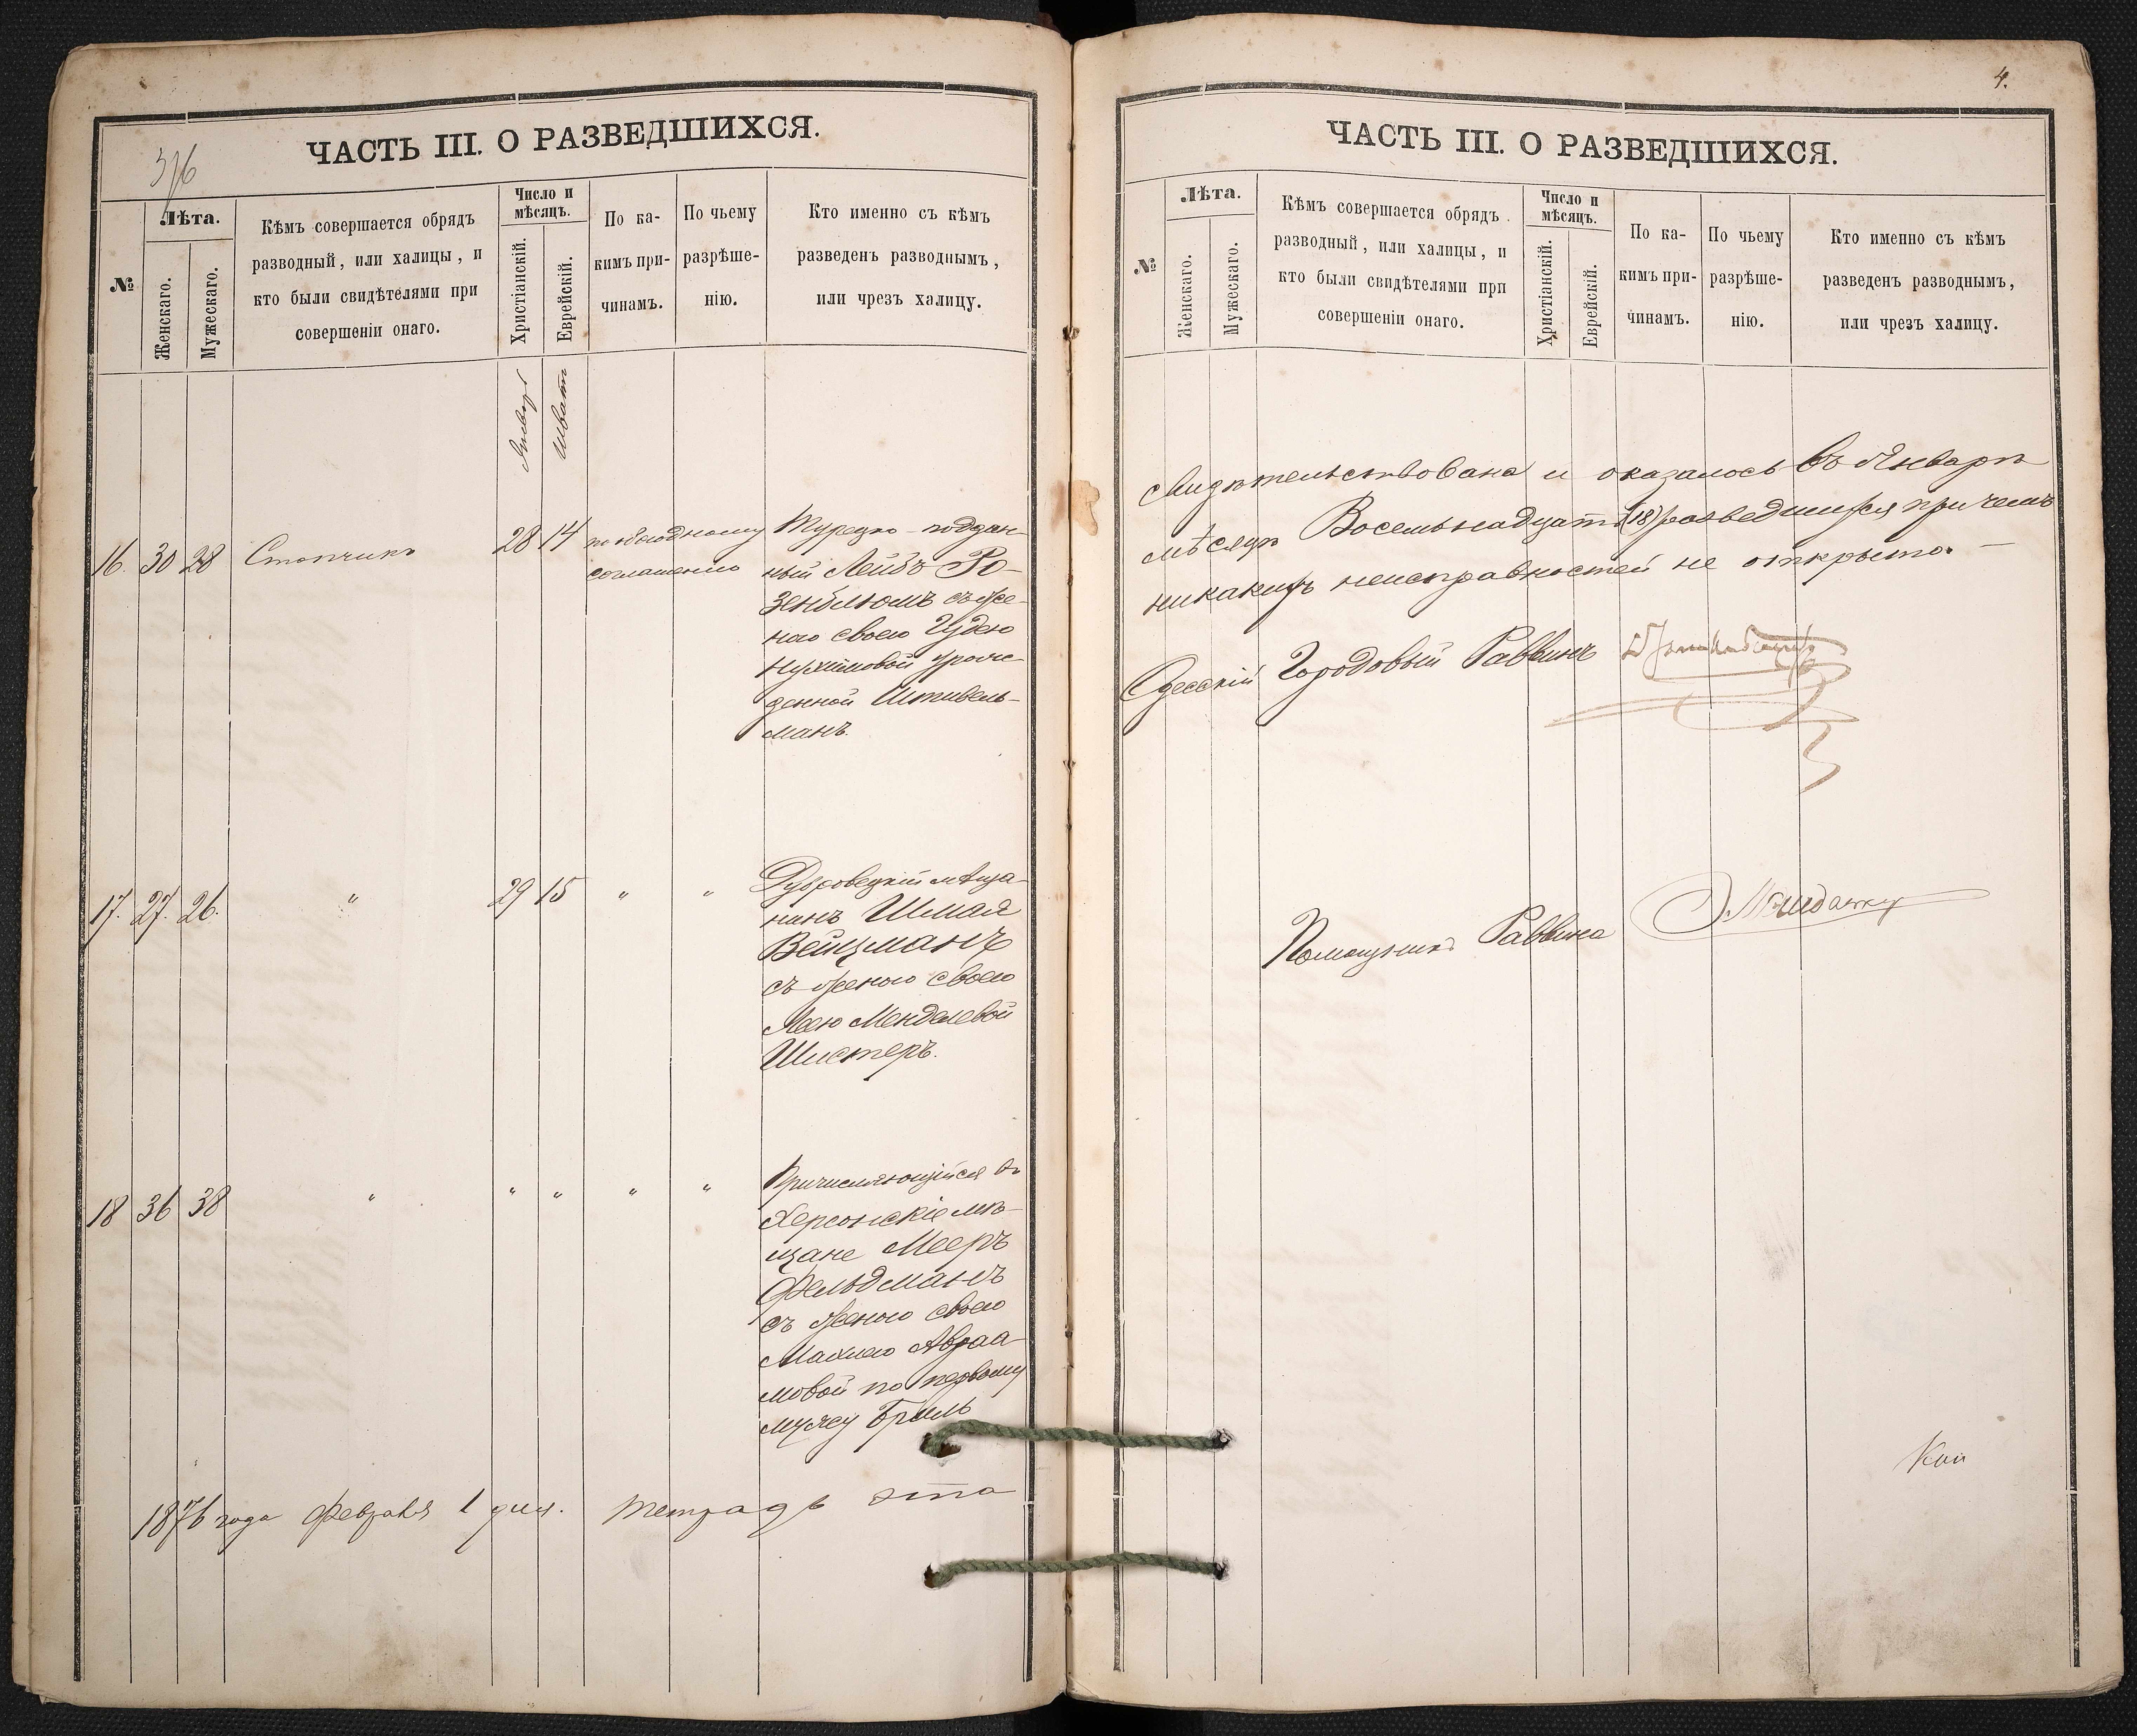 ЧАСТЬ III. О РАЗВЕДШИХСЯ.
376
№
Лѣта.
Женскаго.
Мужескаго.
Кѣмъ совершается обрядъ
разводный, или халицы, и
кто были свидѣтелями при
совершеніи онаго.
Число и
мѣсяцъ.
Христіанскій.
Еврейскій.
По ка-
кимъ при-
чинамъ.
По чьему
разрѣше-
нію.
Кто именно съ кѣмъ
разведенъ разводнымъ,
или чрезъ халицу.
Январь
Шватъ
16. 30 28 28 14
соглашенію
Турецко-поддан-
ный Лейбъ Ро-
зенблюмъ съ же-
ною своею
Нухимовой урож-
денной Штивель-
манъ.
17. 27. 26. " 29 15 " "
Дубровецкій мѣща-
нинъ Шмая
Вейцманъ
съ женою своею
Леею Менделевой
Шистеръ.
18 36 38 " " " " "
Причисляющійся въ
Херсонскіе мѣ-
щане Мееръ
Фельдманъ
съ женою своею
Авраа-
мовой по первому
мужу Бриль
1876 года Февраля 1 дня. Тетрадь эта
4.
ЧАСТЬ III. О РАЗВЕДШИХСЯ.
№
Лѣта.
Женскаго.
Мужескаго.
Кѣмъ совершается обрядъ
разводный, или халицы, и
кто были свидѣтелями при
совершеніи онаго.
Число и
мѣсяцъ.
Христіанскій.
Еврейскій.
По ка-
кимъ при-
чинамъ.
По чьему
разрѣше-
нію.
Кто именно съ кѣмъ
разведенъ разводнымъ,
или чрезъ халицу.
свидѣтельствована и оказалось въ Январѣ
мѣсяцѣ Восемьнадцать (18) разведшихся при чемъ
никакихъ неисправностей не открыто. —
Одесскій Городовый Раввинъ
Помощникъ Раввина